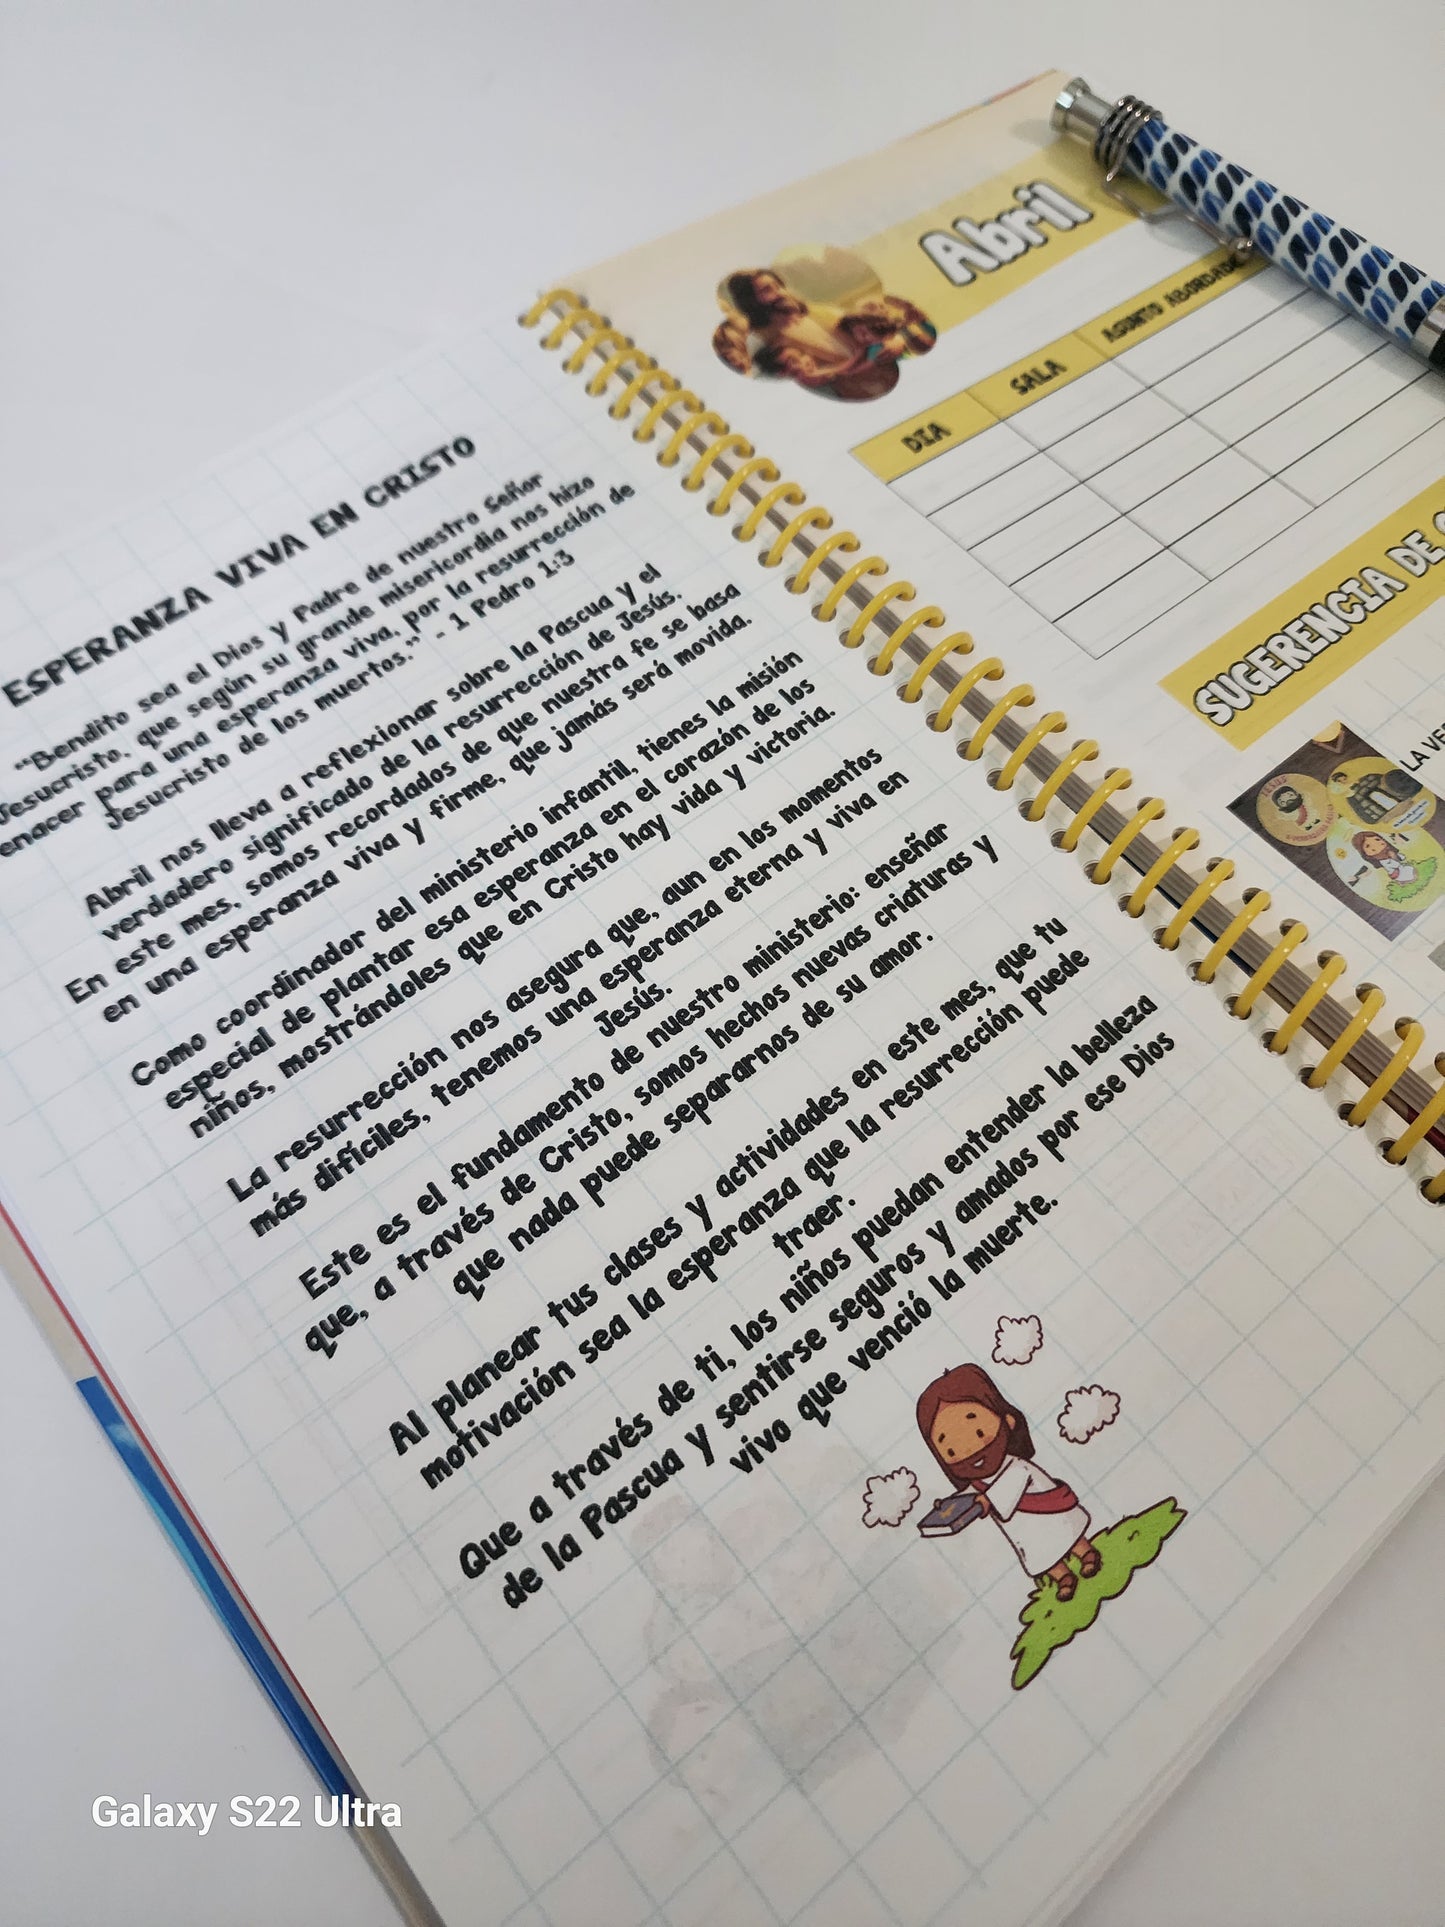 ESPERANZA VIVA EN CRISTO
"Bendito sea el Dios y Padre de nuestro Señor
Jesucristo, que según su grande misericordia nos hizo
enacer para una esperanza viva, por la resurrección de
Jesucristo de los muertos." - 1 Pedro 1:3
Abril nos lleva a reflexionar sobre la Pascua y el
verdadero significado de la resurrección de Jesús.
En este mes, somos recordados de que nuestra fe se basa
en una esperanza viva y firme, que jamás será movida.
Como coordinador del ministerio infantil, tienes la misión
especial de plantar esa esperanza en el corazón de los
niños, mostrándoles que en Cristo hay vida y victoria.
La resurrección nos asegura que, aun en los momentos
más difíciles, tenemos una esperanza eterna y viva en
Jesús.
Este es el fundamento de nuestro ministerio: enseñar
que, a través de Cristo, somos hechos nuevas criaturas y
que nada puede separarnos de su amor.
Al planear tus clases y actividades en este mes, que tu
motivación sea la esperanza que la resurrección puede
traer.
Que a través de ti, los niños puedan entender la belleza
de la Pascua y sentirse seguros y amados por ese Dios
vivo que venció la muerte.
Abril
DIA SALA ASUNTO ABORDADO
SUGERENCIA DE
LA
Galaxy S22 Ultra